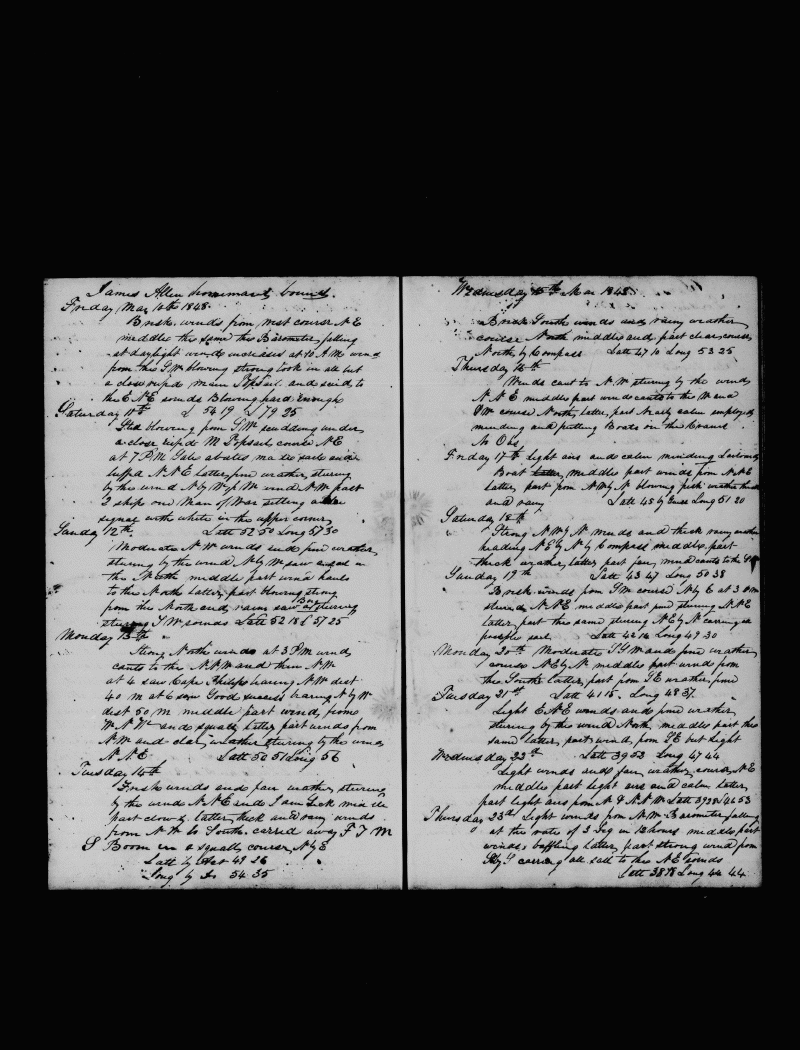 James Allen homeward bound.
Friday Mar 10th 1848.
Brisk winds from West course N E
middle the same the Barometer falling
at daylight winds increased at 10 A M wind
from the S W blowing strong took in all but
a close reefd main Topsail and scud to
the E N E sounds Blowing hard enough
Saturday 11th L 54 19 L 79 25
Still blowing from S W scudding under
a close reefd M Topsail course N E
at 7 P M Gale abates made sail and
luffd N N E Latter fine weather stering
by the wind N by W wind N W past
2 ships one Man of War setting a
signal with white in the upper corner
Sunday 12th Latt 52 50 Long 57 30
Moderate N W winds and fine weather
stering by the wind N by W saw in
the North middle part wind hauls
to the North Latter part blowing strong
from the North and rains saw stering
S W sounds Latt 52 18 L 57 25
Monday 13th
Strong North winds at 3 P M wind
cants to the N N W and then N W
at 4 saw Cape Philips baring N W dist
40 m at 6 saw Good success baring N by W
dist 50 m middle part wind from
W N W and squally latter part winds from
N W and clear weather stering by the wind
N N E Latt 50 51 Long 56
Tuesday 14th
Brisk winds and fair weather stering
by the wind N N E middle
part cloudy latter thick and rainy winds
from N W to South. carried away F T M
S Boom in a squall course N by E
Latt by Obst 49 26
Long by Do 54 35
Wednesday 15th Mar 1848
Brisk South winds and rainy weather
course North middle and part clear course
North by Compass Latt 47 10 Long 53 25
Thursday 16th
Winds cant to N W stering by the wind
N N E middle part wind cants to the W and
S W course North, latter part Nearly calm employed
mending and putting Boats on the Cranes
No Obs
Friday 17th light airs and calm mending Larboard
Boat middle part winds from N N E
latter part from N W by N blowing fresh weather thick
and rainy Latt 45 by Long 51 20
Saturday 18th
Strong N W by N winds and thick rainy weather
heading N E by N by Compass middle part
thick weather, latter part fair, wind cants to the
Sunday 19th Latt 43 47 Long 50 38
Brisk winds from S W course N by E at 3 P M
stered N N E middle part fine stering N N E
latter part the same stering N E by N carring a
press of sail Latt 42 14 Long 49 30
Monday 20th Moderate S S W and fine weather
course N E by N middle part winds from
the South latter part from S E weather fine
Tuesday 21st Latt 41 15. Long 48 37.
Light E N E winds and fine weather
stering by the wind North, middle part the
same latter part wind from S E but light
Wednesday 22nd Latt 39 53 Long 47 44
Light winds and fair weather course N E
middle part light airs and calm latter
part light airs from N & N N W Latt 39 28 L 46 53
Thursday 23rd Light winds from N W Barometer falling
at the rate of 3 Deg in 12 hours middle part
winds baffling latter part strong wind from
S by carring all sail to the N E sounds
Latt 38 18 Long 44 44